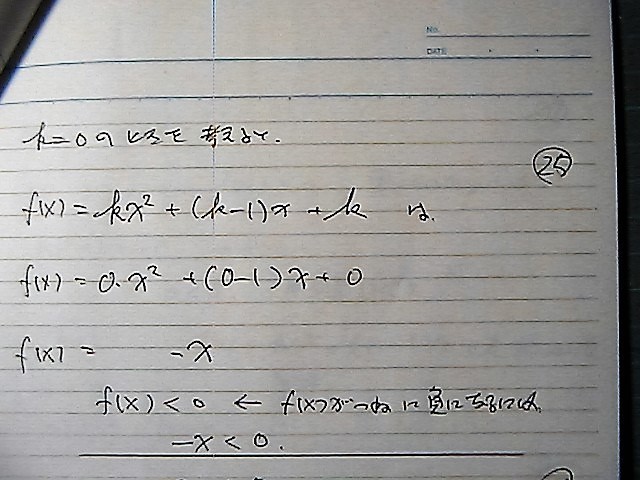 No.
DATE
k=0のときを考えると、
㉕
f(x) = kx² + (k-1)x + k は、
f(x) = 0・x² + (0-1)x + 0
f(x) = -x
f(x) < 0 ← f(x)がつねに負になるには、
-x < 0.